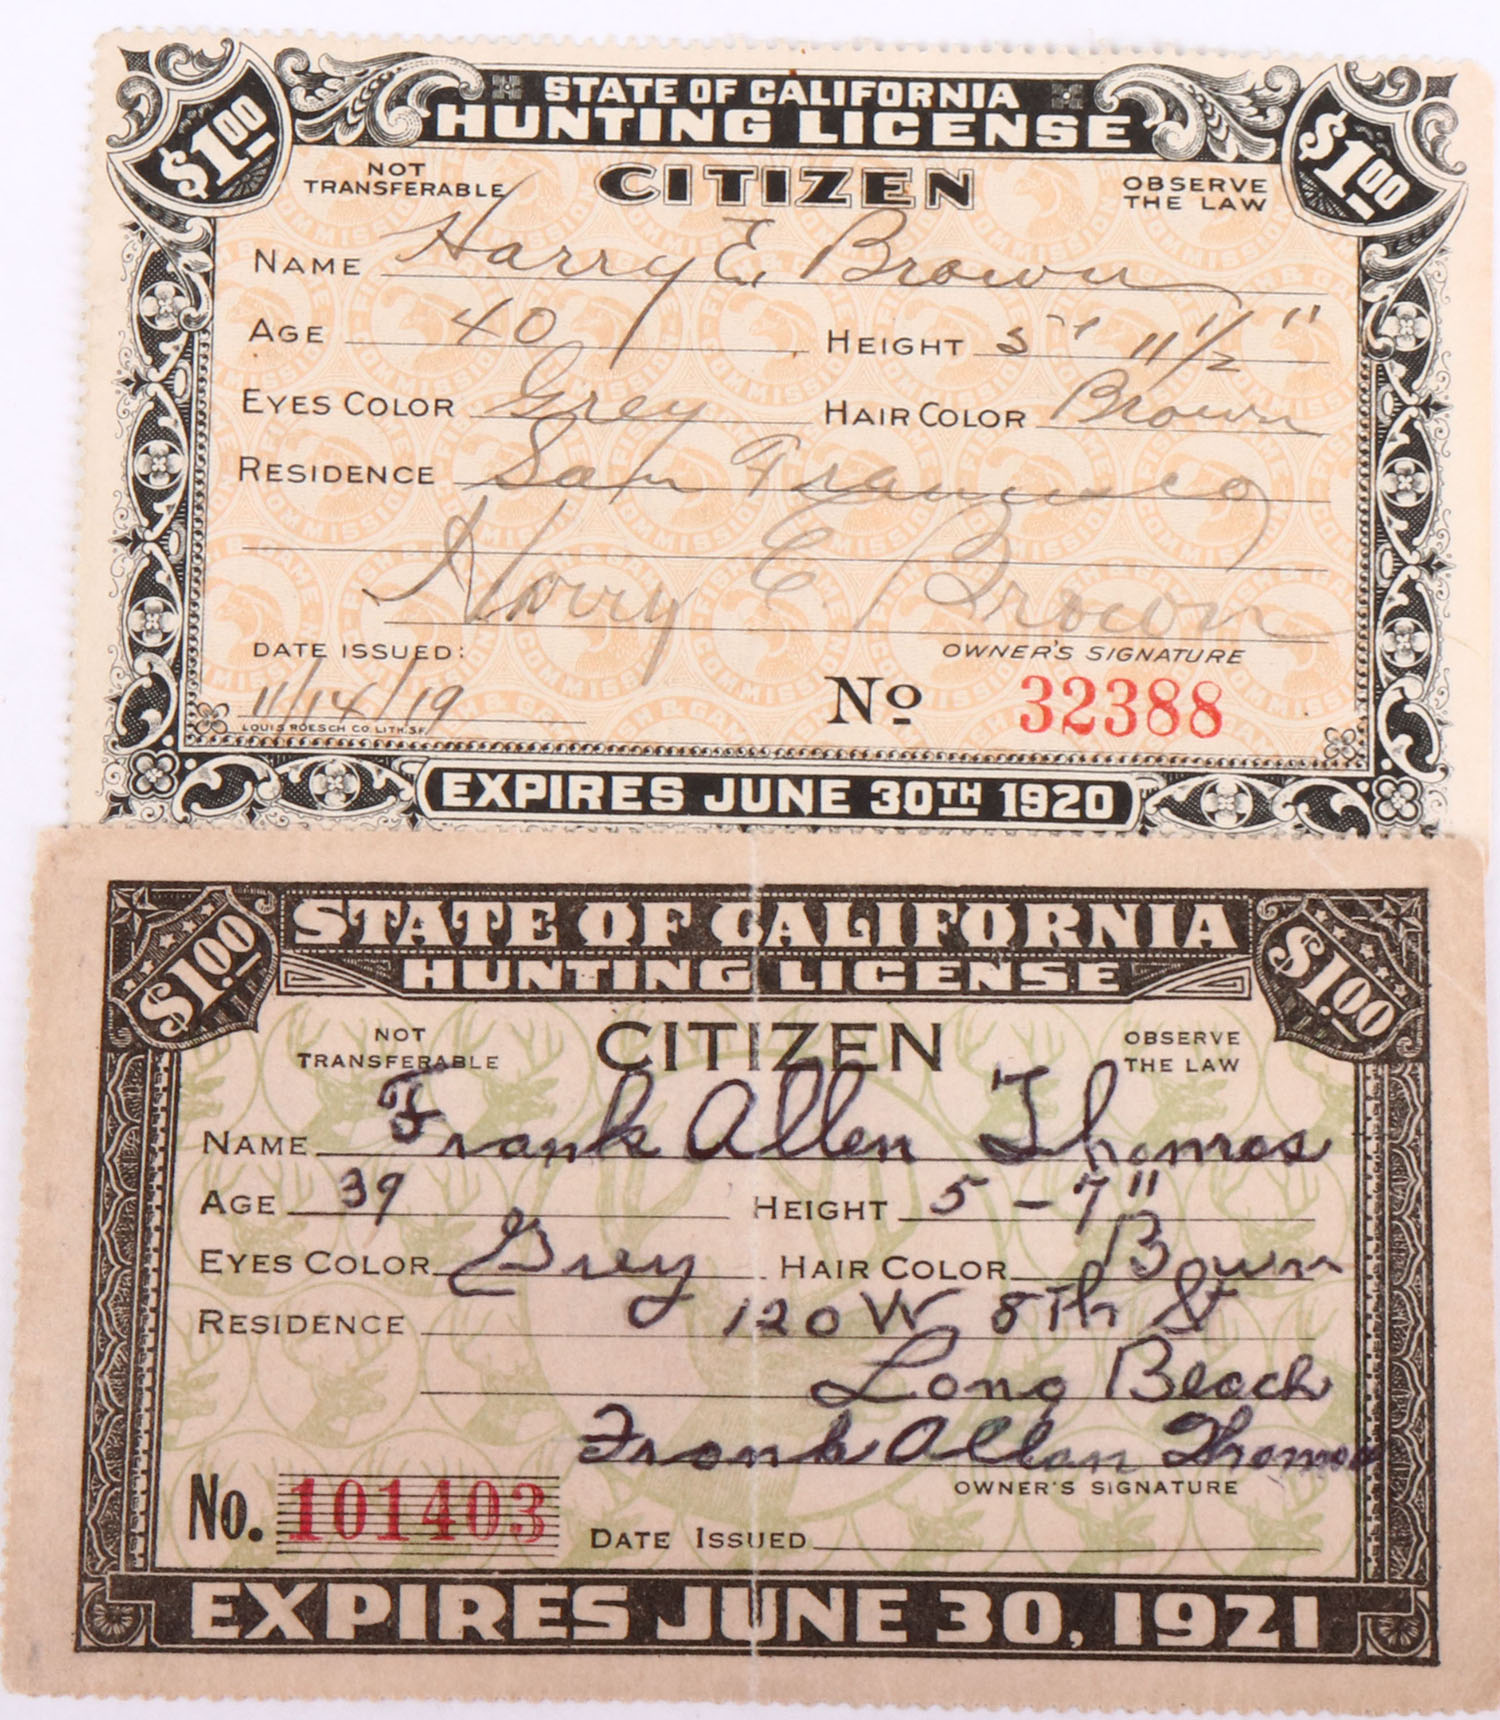 $1.00
STATE OF CALIFORNIA
$1.00
HUNTING LICENSE
NOT TRANSFERABLE
CITIZEN
OBSERVE THE LAW
NAME Harry E. Brown
AGE 40 HEIGHT 5' 11 1/2"
EYES COLOR Grey HAIR COLOR Brown
RESIDENCE San Francisco
Harry E. Brown
DATE ISSUED: OWNER'S SIGNATURE
11/14/19 No 32388
LOUIS ROESCH CO. LITH. S.F.
EXPIRES JUNE 30TH 1920
$1.00
STATE OF CALIFORNIA
$1.00
HUNTING LICENSE
NOT TRANSFERABLE
CITIZEN
OBSERVE THE LAW
NAME Frank Allen Thomas
AGE 39 HEIGHT 5-7"
EYES COLOR Grey HAIR COLOR Bown
RESIDENCE 120 W 8Th St
Long Beach
Frank Allan Thomas
OWNER'S SIGNATURE
No. 101403 DATE ISSUED
EXPIRES JUNE 30, 1921